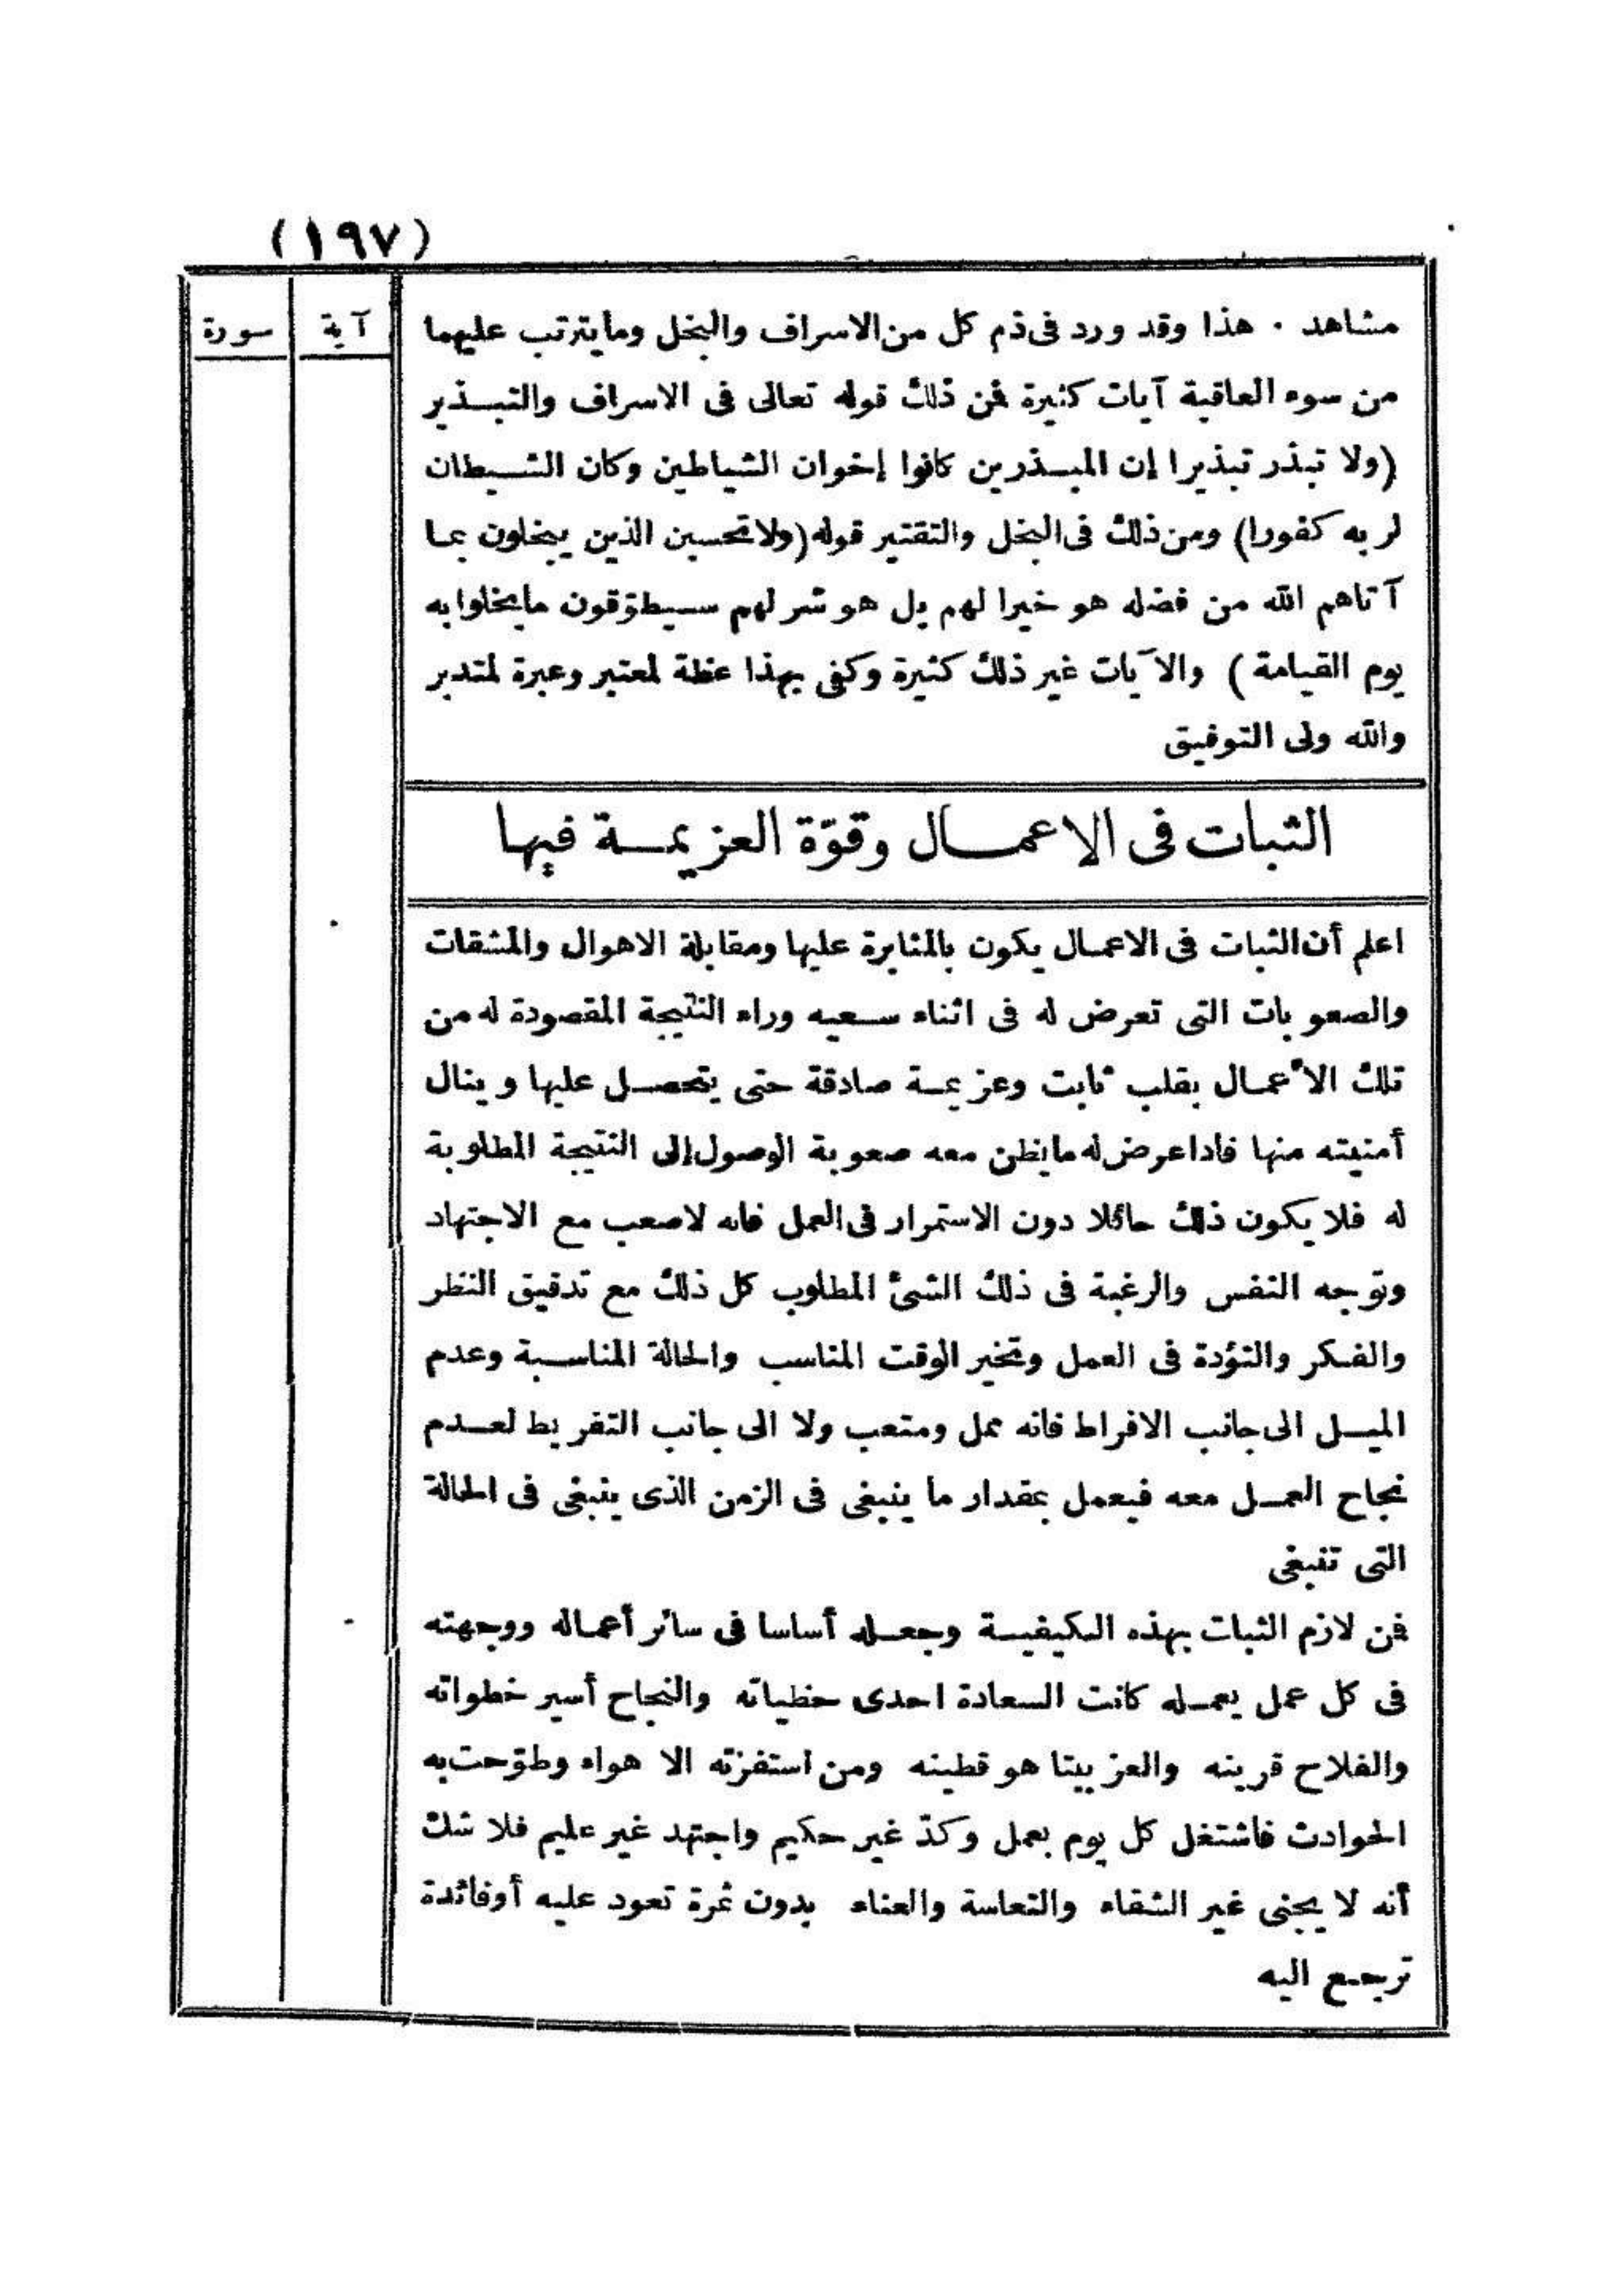 (١٩٧)
آية
سورة
مشاهد . هذا وقد ورد فى ذم كل من الاسراف والبخل وما يترتب عليهما
من سوء العاقبة آيات كثيرة فمن ذلك قوله تعالى فى الاسراف والتبذير
(ولا تبذر تبذيرا إن المبذرين كانوا إخوان الشياطين وكان الشيطان
لربه كفورا) ومن ذلك فى البخل والتقتير قوله (ولا تحسبن الذين يبخلون بما
آتاهم الله من فضله هو خيرا لهم بل هو شر لهم سيطوّقون ما بخلوا به
يوم القيامة) والآيات غير ذلك كثيرة وكفى بهذا عظة لمعتبر وعبرة لمتدبر
والله ولى التوفيق
الثبات فى الاعمال وقوّة العزيمة فيها
اعلم أن الثبات فى الاعمال يكون بالمثابرة عليها ومقابلة الاهوال والمشقات
والصعوبات التى تعرض له فى اثناء سعيه وراء النتيجة المقصودة له من
تلك الأعمال بقلب ثابت وعزيمة صادقة حتى يتحصل عليها وينال
أمنيته منها فاذا عرض له ما يظن معه صعوبة الوصول إلى النتيجة المطلوبة
له فلا يكون ذلك حائلا دون الاستمرار فى العمل فانه لا صعب مع الاجتهاد
وتوجه النفس والرغبة فى ذلك الشئ المطلوب كل ذلك مع تدقيق النظر
والفكر والتؤدة فى العمل وتخير الوقت المناسب والحالة المناسبة وعدم
الميل الى جانب الافراط فانه ممل ومتعب ولا الى جانب التفريط لعدم
نجاح العمل معه فيعمل بمقدار ما ينبغى فى الزمن الذى ينبغى فى الحالة
التى تنبغى
فمن لازم الثبات بهذه الكيفية وجعله أساسا فى سائر أعماله ووجهته
فى كل عمل يعمله كانت السعادة احدى حظياته والنجاح أسير خطواته
والفلاح قرينه والعز بيتا هو قطينه ومن استفزته الاهواء وطوّحت به
الحوادث فاشتغل كل يوم بعمل وكدّ غير حكيم واجتهد غير عليم فلا شك
أنه لا يجنى غير الشقاء والتعاسة والعناء بدون ثمرة تعود عليه أو فائدة
ترجع اليه